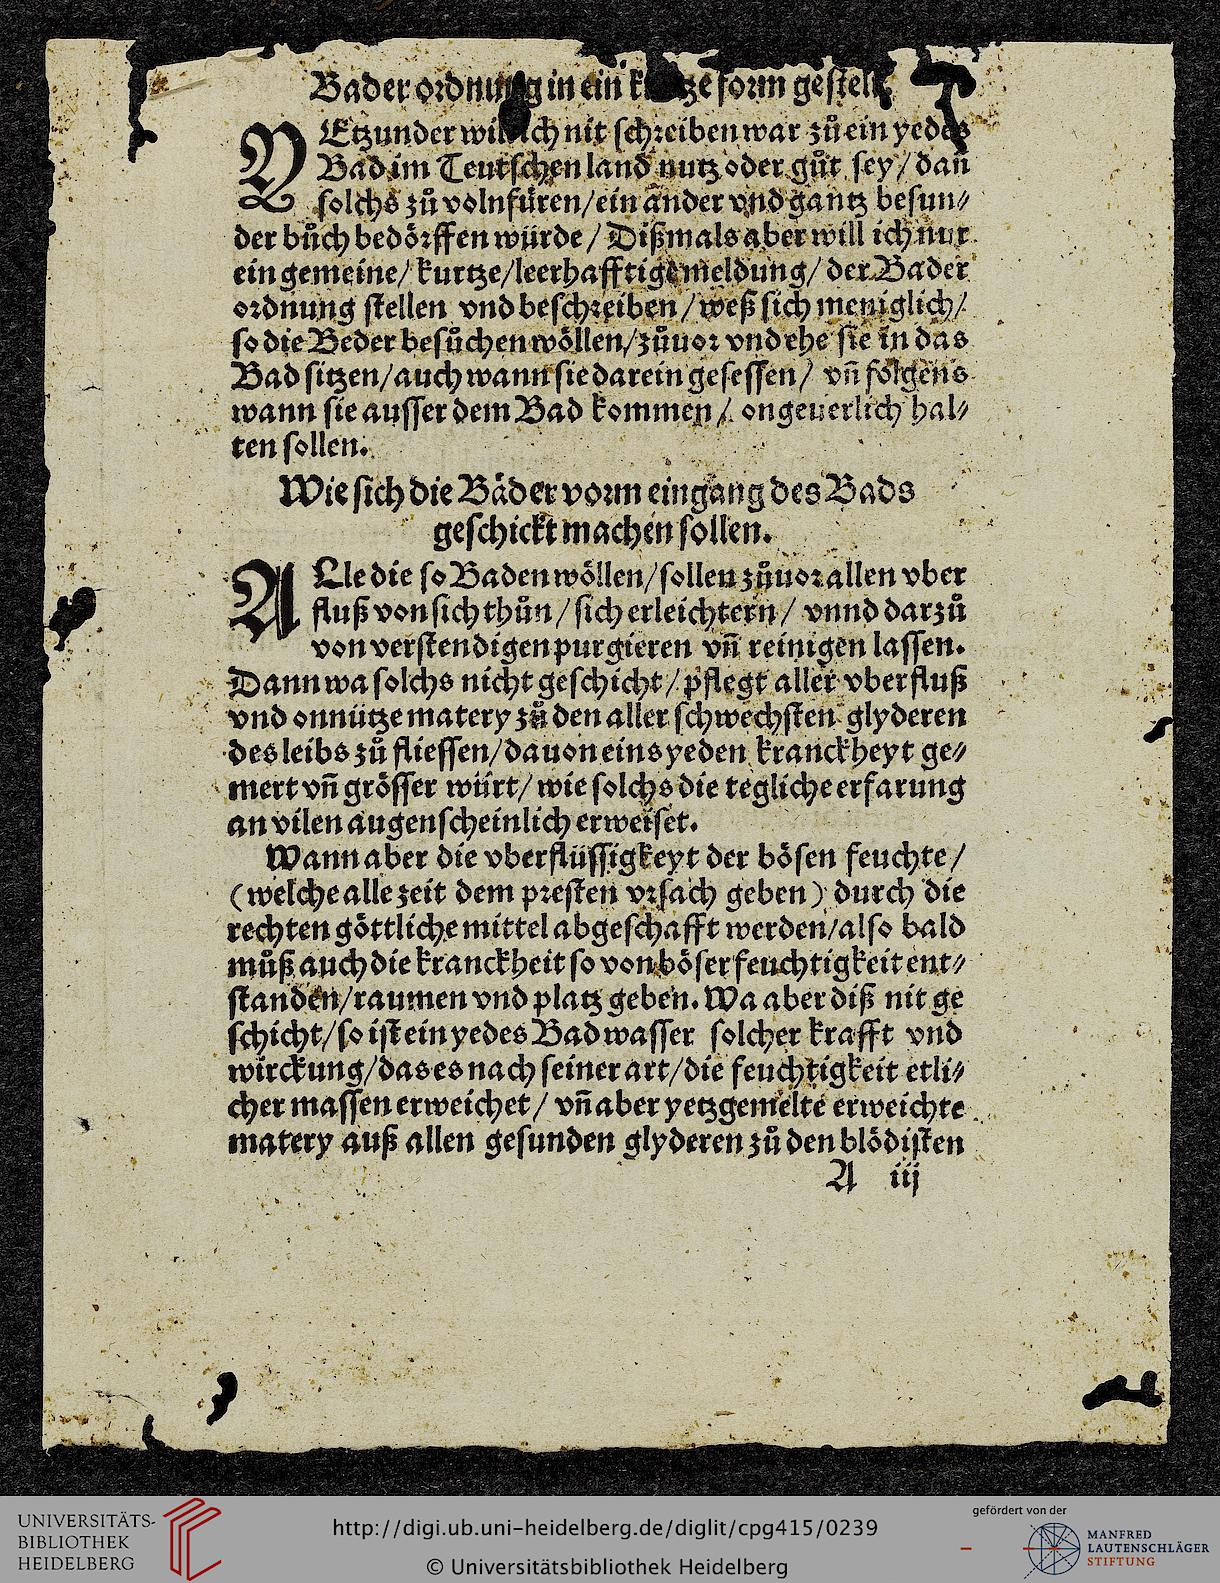 Bader ordnung in ein kurtze form gestelt.
YEtzunder will ich nit schreiben war zů ein yedes
Bad im Teutschen land nutz oder gůt sey / dañ
solchs zů volnfüren / ein ander vnd gantz besun⸗
der bůch bedörffen würde / Dißmals aber will ich nur
ein gemeine / kurtze / leerhafftige meldung / der Bader
ordnung stellen vnd beschreiben / weß sich meniglich /
so die Beder besůchen wöllen / zůuor vnd ehe sie in das
Bad sitzen / auch wann sie darein gesessen / vñ folgens
wann sie ausser dem Bad kommen / ongeuerlich hal⸗
ten sollen.
Wie sich die Bäder vorm eingang des Bads
geschickt machen sollen.
ALle die so Baden wöllen / sollen zůuor allen vber
fluß von sich thůn / sich erleichtern / vnnd darzů
von verstendigen purgieren vñ reinigen lassen.
Dann wa solchs nicht geschicht / pflegt aller vberfluß
vnd onnütze matery zů den aller schwechsten glyderen
des leibs zů fliessen / dauon eins yeden kranckheyt ge⸗
mert vñ grösser würt / wie solchs die tegliche erfarung
an vilen augenscheinlich erweiset.
Wann aber die vberflüssigkeyt der bösen feuchte /
(welche alle zeit dem presten vrsach geben) durch die
rechten göttliche mittel abgeschafft werden / also bald
můß auch die kranckheit so von böser feuchtigkeit ent⸗
standen / raumen vnd platz geben. Wa aber diß nit ge
schicht / so ist ein yedes Badwasser solcher krafft vnd
wirckung / das es nach seiner art / die feuchtigkeit etli⸗
cher massen erweichet / vñ aber yetzgemelte erweichte
matery auß allen gesunden glyderen zů den blödisten
A iij
UNIVERSITÄTS-
BIBLIOTHEK
HEIDELBERG
http://digi.ub.uni-heidelberg.de/diglit/cpg415/0239
© Universitätsbibliothek Heidelberg
gefördert von der
MANFRED
LAUTENSCHLÄGER
STIFTUNG